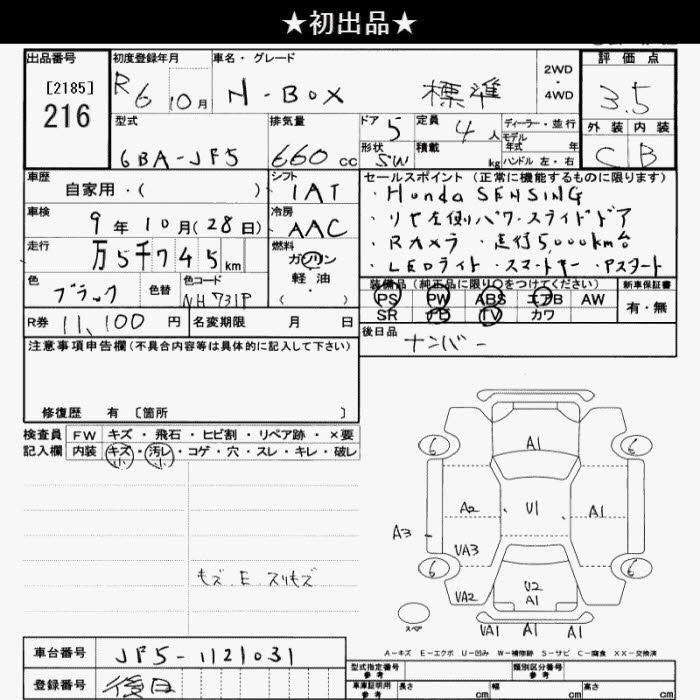 ★初出品★
出品番号
[2185]
216
初度登録年月
R6 10月
車名・グレード
N-BOX 標準
2WD
・
4WD
評価点
3.5
外装 内装
C B
型式
6BA-JF5
排気量
660 cc
ドア 5
定員 4 人
形状 SW
積載 kg
ディーラー・並行
モデル年式 年
ハンドル 左・右
車歴
自家用・( )
シフト
IAT
車検
9年10月(28日)
冷房
AAC
走行
万5千745km
燃料
ガソリン
軽油
( )
色
ブラック
色替
色コード
NH731P
R券 11,100 円
名変期限 月 日
セールスポイント (正常に機能するものに限ります)
・Honda SENSING
・リヤ左側パワースライドドア
・Rカメラ ・走行5,000km台
・LEDライト ・スマートキー ・Pスタート
装備品 (純正品に限り○をつけてください)
新車保証書
PS PW ABS エアB AW
SR TV カワ
有・無
後日品
ナンバー
注意事項申告欄(不具合内容等は具体的に記入して下さい)
修復歴 有 〔箇所 〕
検査員記入欄
FW キズ・飛石・ヒビ割・リペア跡・×要
内装 キズ・汚レ・コゲ・穴・スレ・キレ・破レ
小 小
モズ.E.スリキズ
A1
6 6
A2 U1 A1
A3
VA3
6 6
VA2
U2
A1
スペア
VA1 A1 A1
A-キズ E-エクボ U-凹み W-補修跡 S-サビ C-腐食 XX-交換済
車台番号 JF5-1121031
登録番号 後日
型式指定番号
参考
類別区分番号
参考
車庫証明用
参考
長さ cm
幅 cm
高さ cm